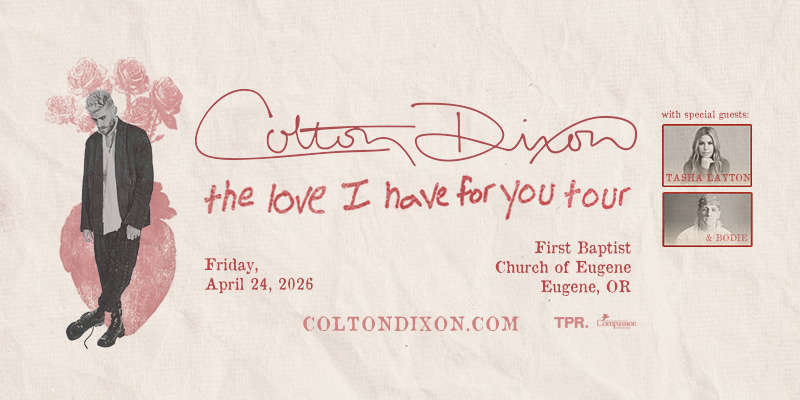 Colton Dixon
the love I have for you tour
with special guests:
TASHA LAYTON
& BODIE
Friday,
April 24, 2026
First Baptist
Church of Eugene
Eugene, OR
COLTONDIXON.COM
TPR.
Compassion